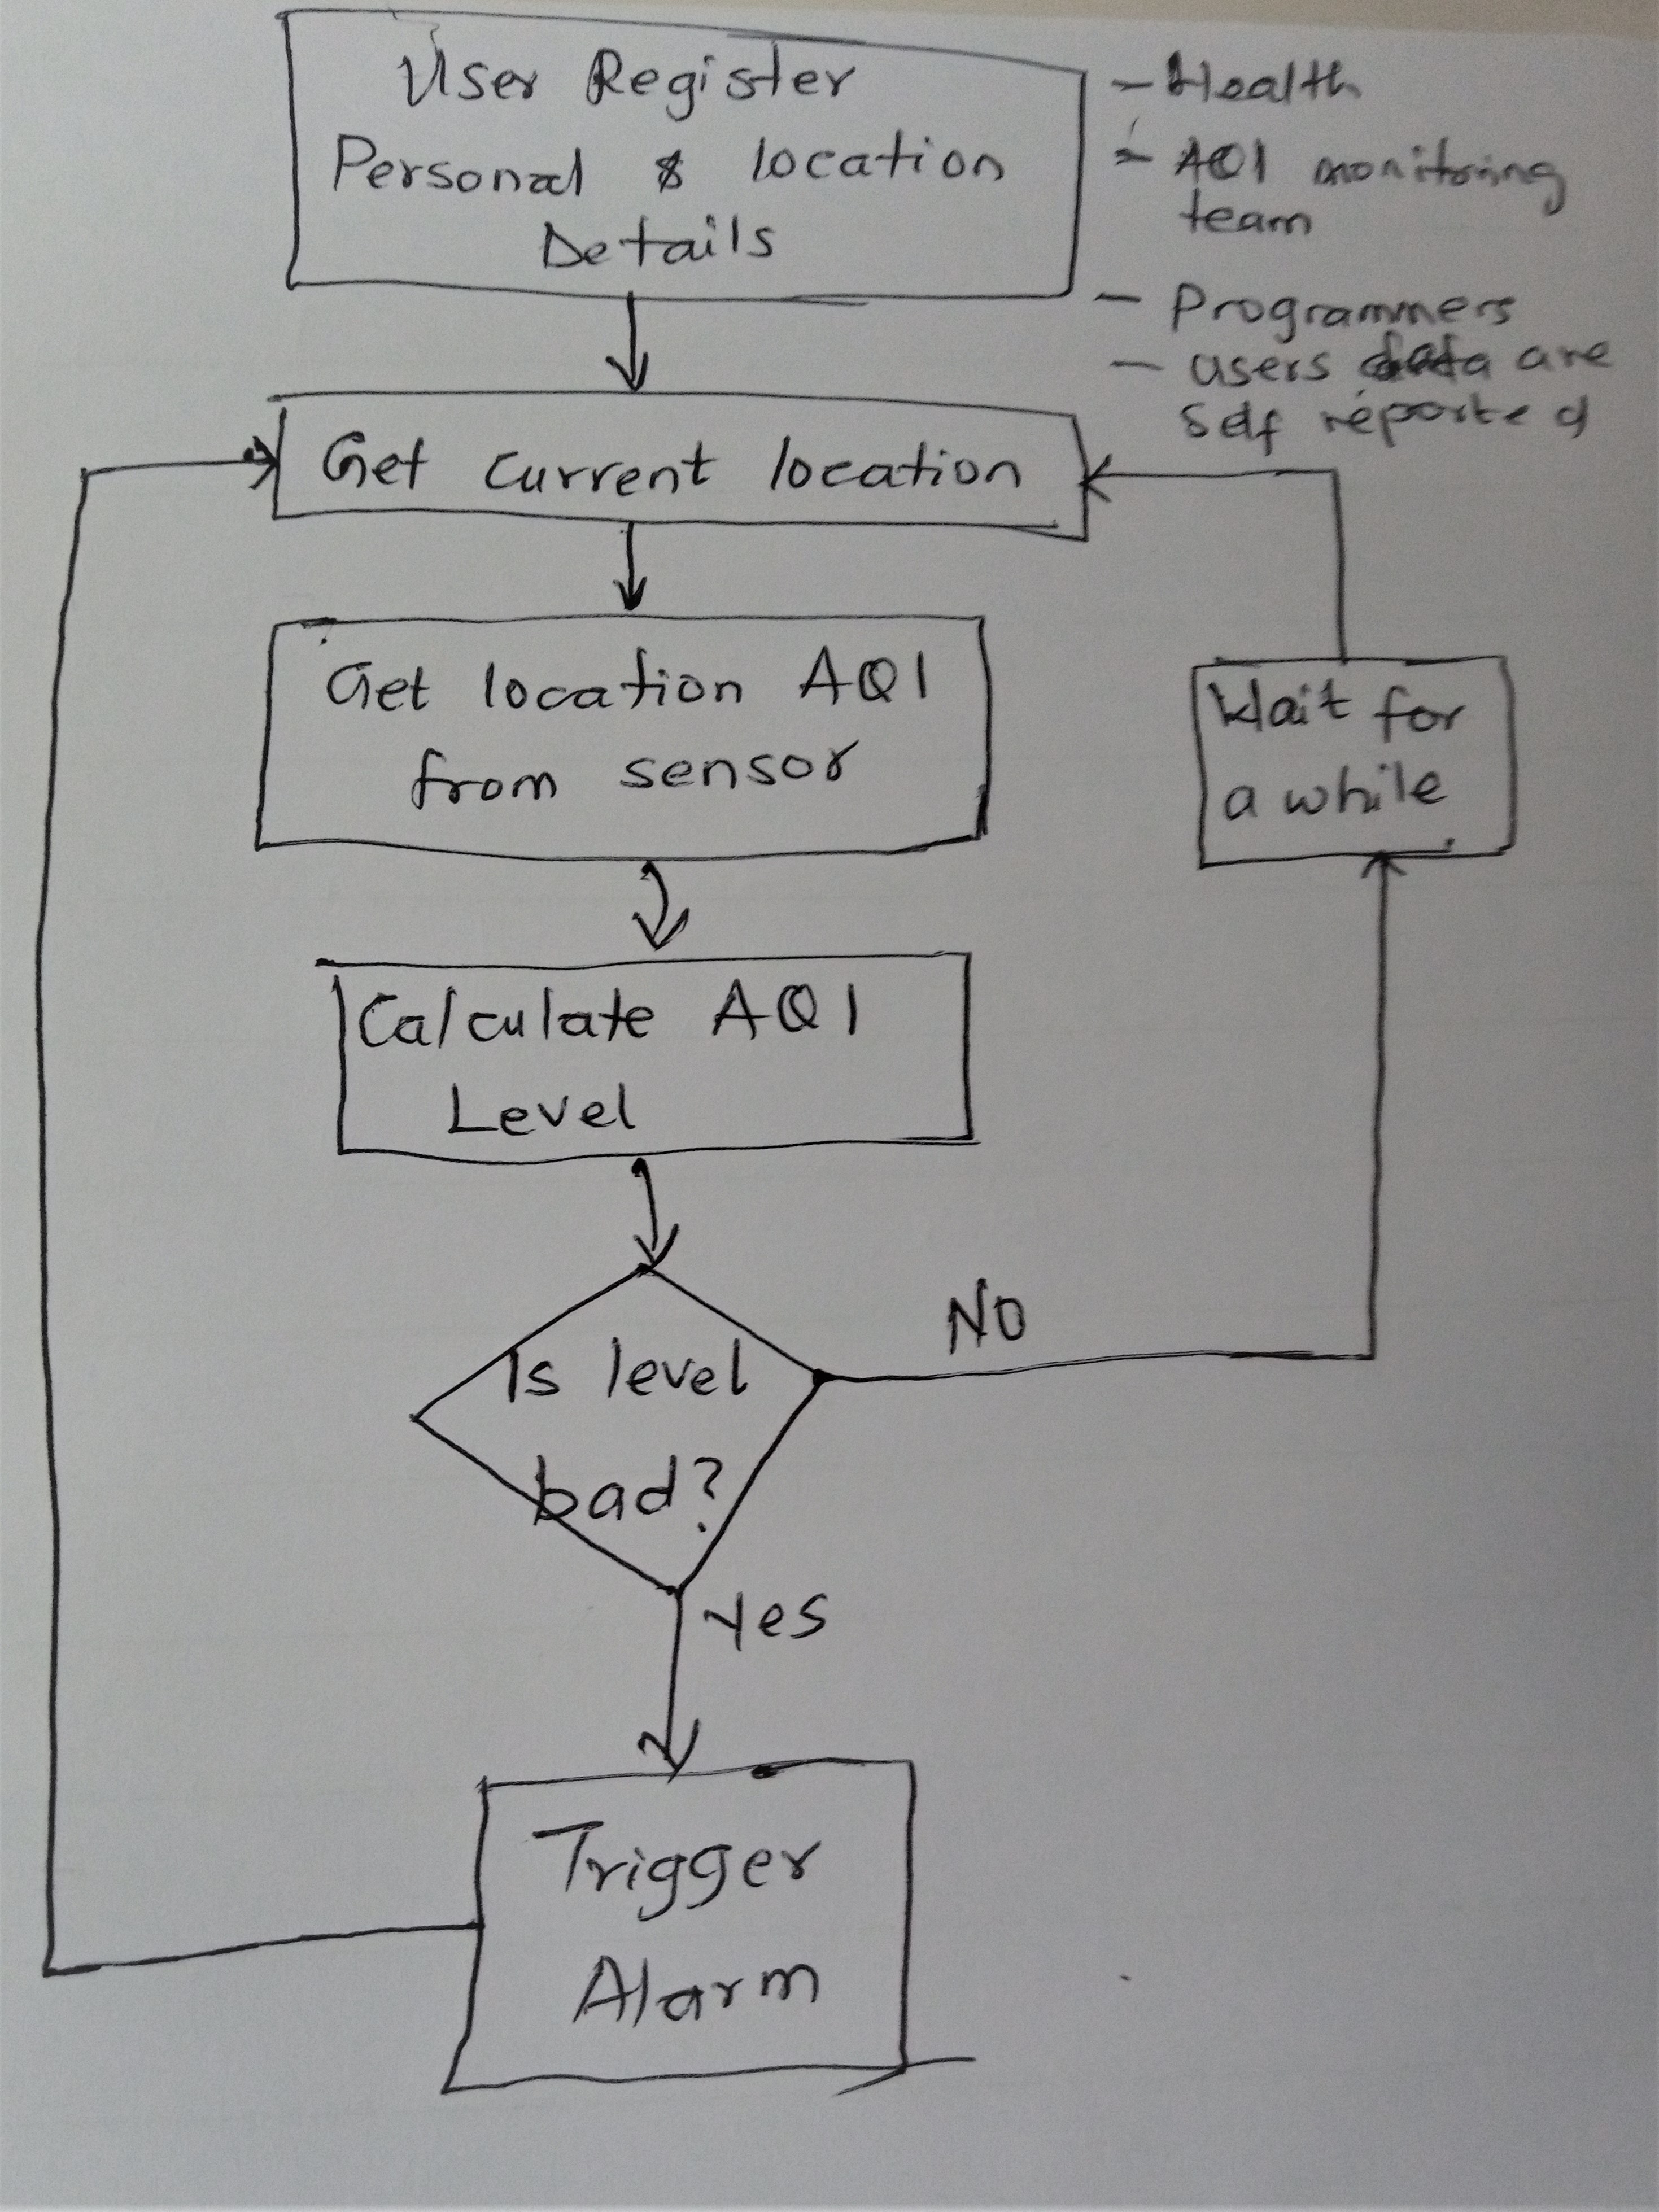 User Register
Personal & location
Details
- Health
- AQI monitoring
team
- Programmers
- users data are
Self reported
Get current location
Get location AQI
from sensor
Wait for
a while
Calculate AQI
Level
Is level
bad?
NO
Yes
Trigger
Alarm